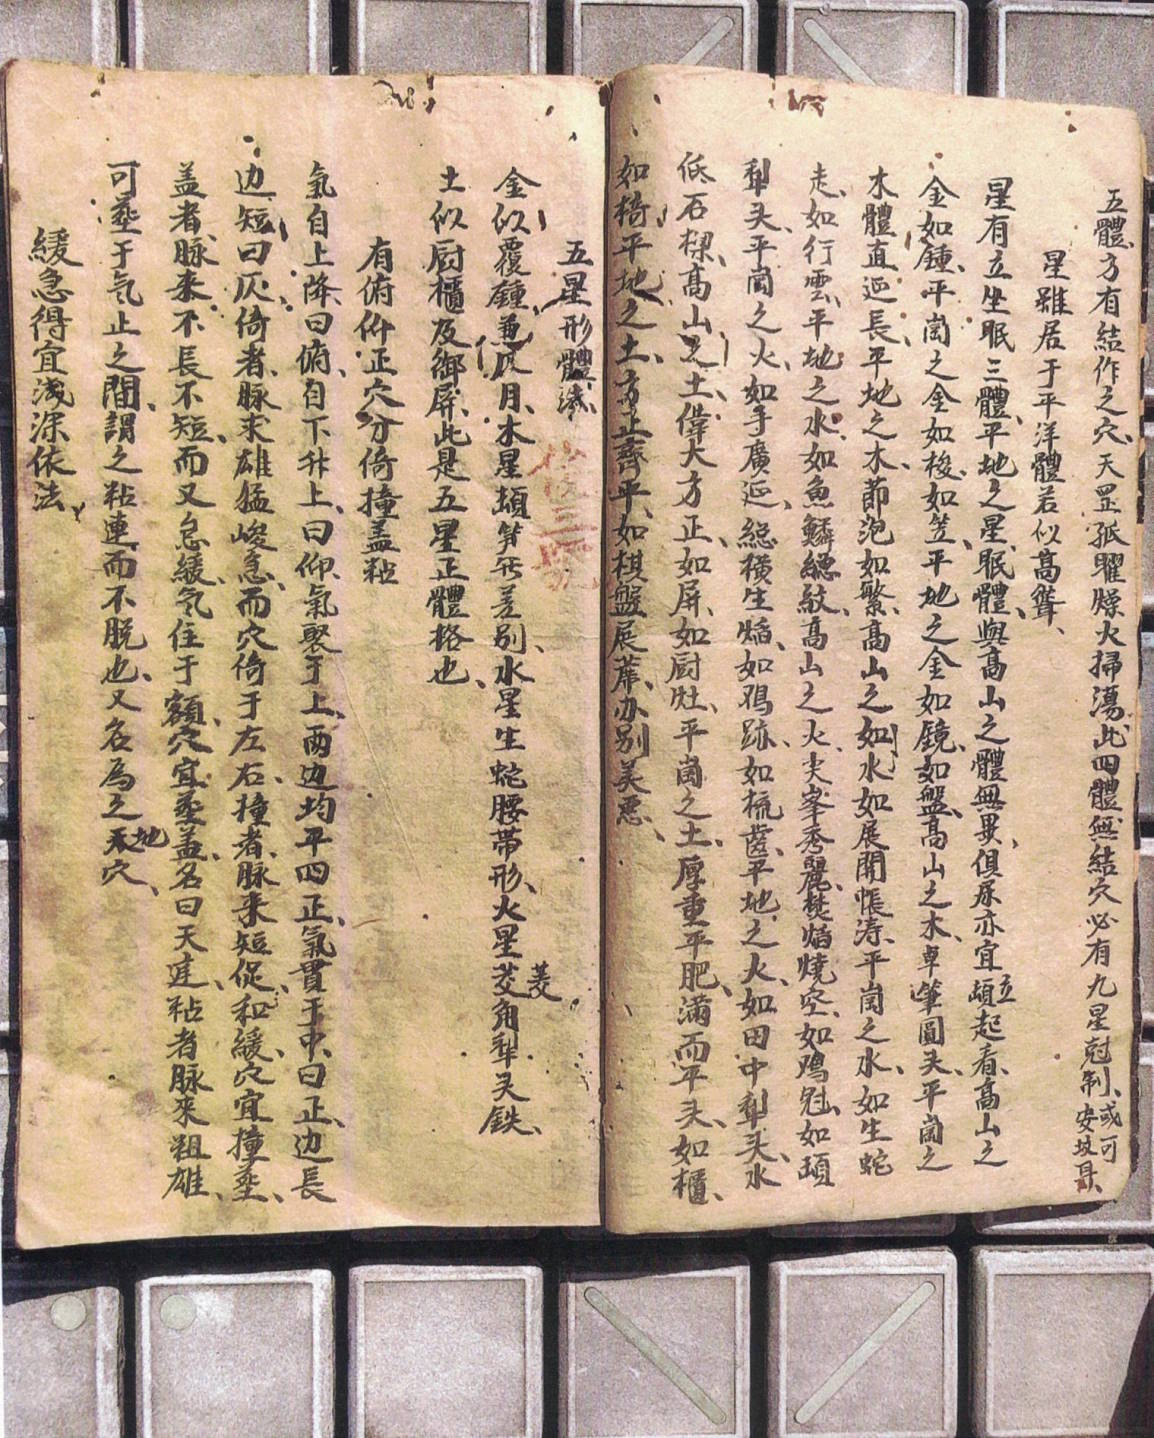 五體方有結作之穴、天罡孤曜燥火掃蕩、此四體無結穴必有九星尅制、或可安坟耳、
星雖居于平洋體若似高聳、
星有立坐眠三體、平地之星、眠體與高山之體無異、俱尿亦宜立起看、高山之
金如鍾、平崗之金如梭、如笠、平地之金如鏡、如盤、高山之木、卓筆圓头、平崗之
木體直延長、平地之木、節泡如繁、高山之如水如展開帳涛、平崗之水、如生蛇
走、如行雲、平地之水、如魚鱗緦紋、高山之火尖峯秀麗、焚焰燒空、如鴻冠、如頭
犁头、平崗之火、如手廣延、総横生焰、如鴉跡、如梳齒、平地之火、如田中犁头、水
低石樑、高山之土、偉大方正、如屏、如厨灶、平崗之土、厚重平肥、滿而平头、如櫃、
如椅、平地之土、方正齊平、如棋盤展蓆、办別美恶、
五星形體法
金似覆鍾、兼仄月、木星頓笋無差别、水星生蛇腰帶形、火星芰菱角犁头鉄、
土似厨櫃及御屏、此是五星正體格也、
有俯仰正穴分倚撞盖粘
氣自上降、曰俯、自下升上、曰仰、氣聚于上、两边均平四正、氣貫于中、曰正、边長
边短、曰仄、倚者、脉来雄猛峻急、而穴倚于左右、撞者、脉来短促和緩、穴宜撞塟、
盖者、脉来不長不短、而又怠緩、氣住于額、穴宜塟盖、名曰天庭、粘者脉来粗雄、
可塟于气止之間、謂之粘連而不脱也、又名為之地穴、
緩急得宜浅深依法、